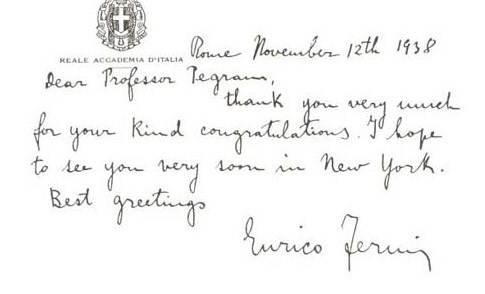 REALE ACCADEMIA D'ITALIA
Rome November 12th 1938
Dear Professor Pegram,
thank you very much
for your kind congratulations. I hope
to see you very soon in New York.
Best greetings
Enrico Fermi